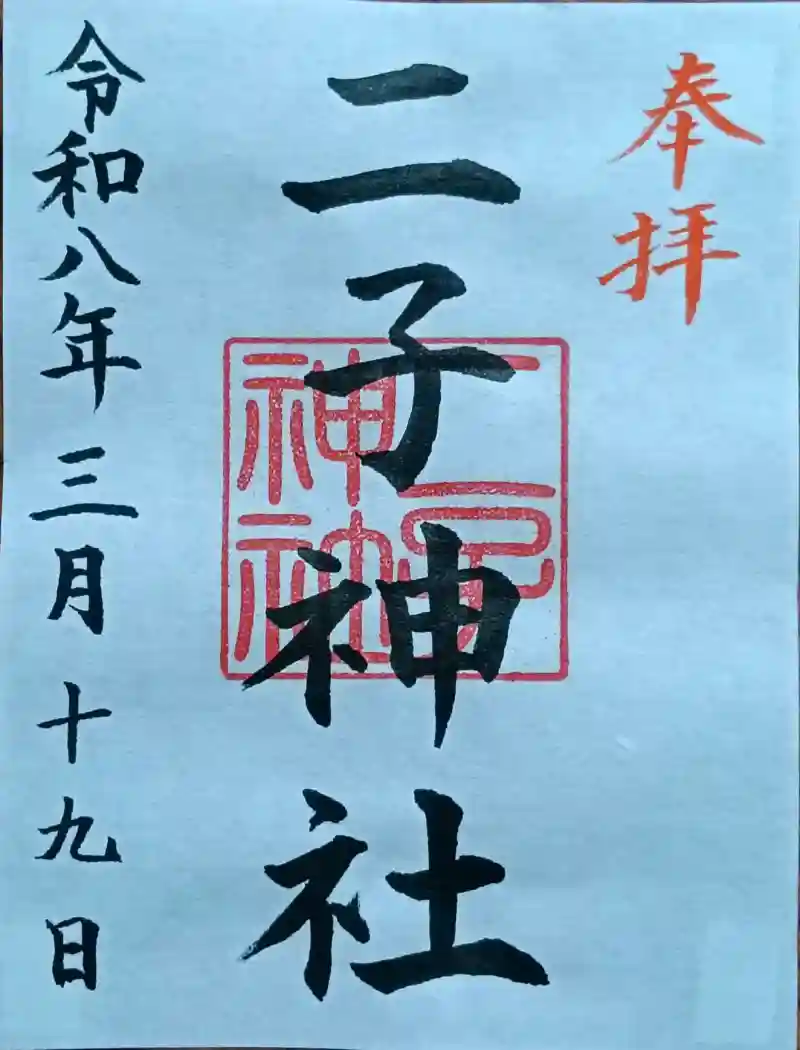 奉拝
二子神社
二子神社
令和八年三月十九日